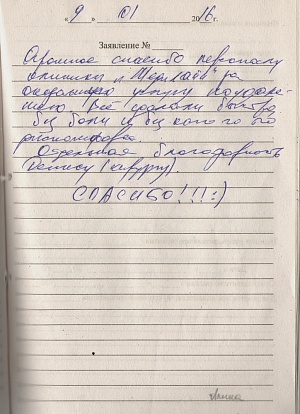 «9» 01 2016 г.
Заявление №
Огромное спасибо персоналу
клиники „ за
оказанную услугу по удале-
нию. Всё сделали быстро
без боли и без какого-то
дискомфорта.
Отдельная благодарность
Денису (хирургу).
СПАСИБО!!! :)